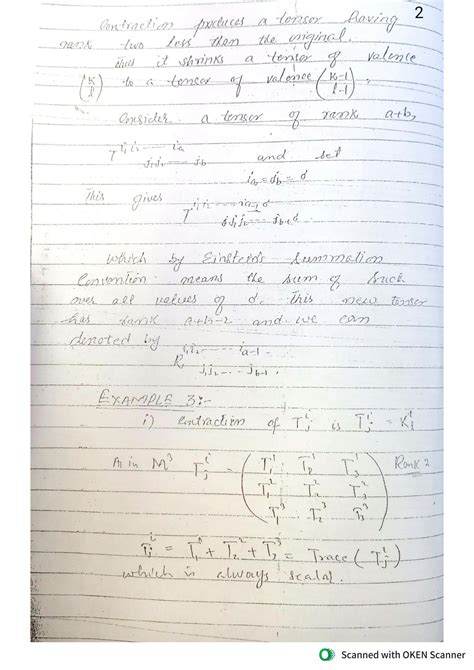 2
Contraction produces a tensor having
rank two less than the original.
thus it shrinks a tensor of valence
(k l) to a tensor of valence (k-1 l-1).
Consider a tensor of rank a+b,
T^{i_1 i_2 ---- i_a}_{j_1 j_2 ---- j_b} and set
i_a = j_b = σ
This gives T^{i_1 i_2 ---- i_{a-1} σ}_{j_1 j_2 ---- j_{b-1} σ}
which by Einstein's Summation
Convention means the sum of such
over all values of σ. This new tensor
has rank a+b-2 and we can
denoted by
R^{i_1 i_2 ---- i_{a-1}}_{j_1 j_2 ---- j_{b-1}}.
EXAMPLE 3:-
i) Contraction of T^i_j is T^i_j = K^i_i
in M^3 T^i_j = (T^1_1 T^1_2 T^1_3 Rank 2
T^2_1 T^2_2 T^2_3
T^3_1 T^3_2 T^3_3)
T^i_i = T^1_1 + T^2_2 + T^3_3 = Trace (T^i_j)
which is always scalar.
Scanned with OKEN Scanner